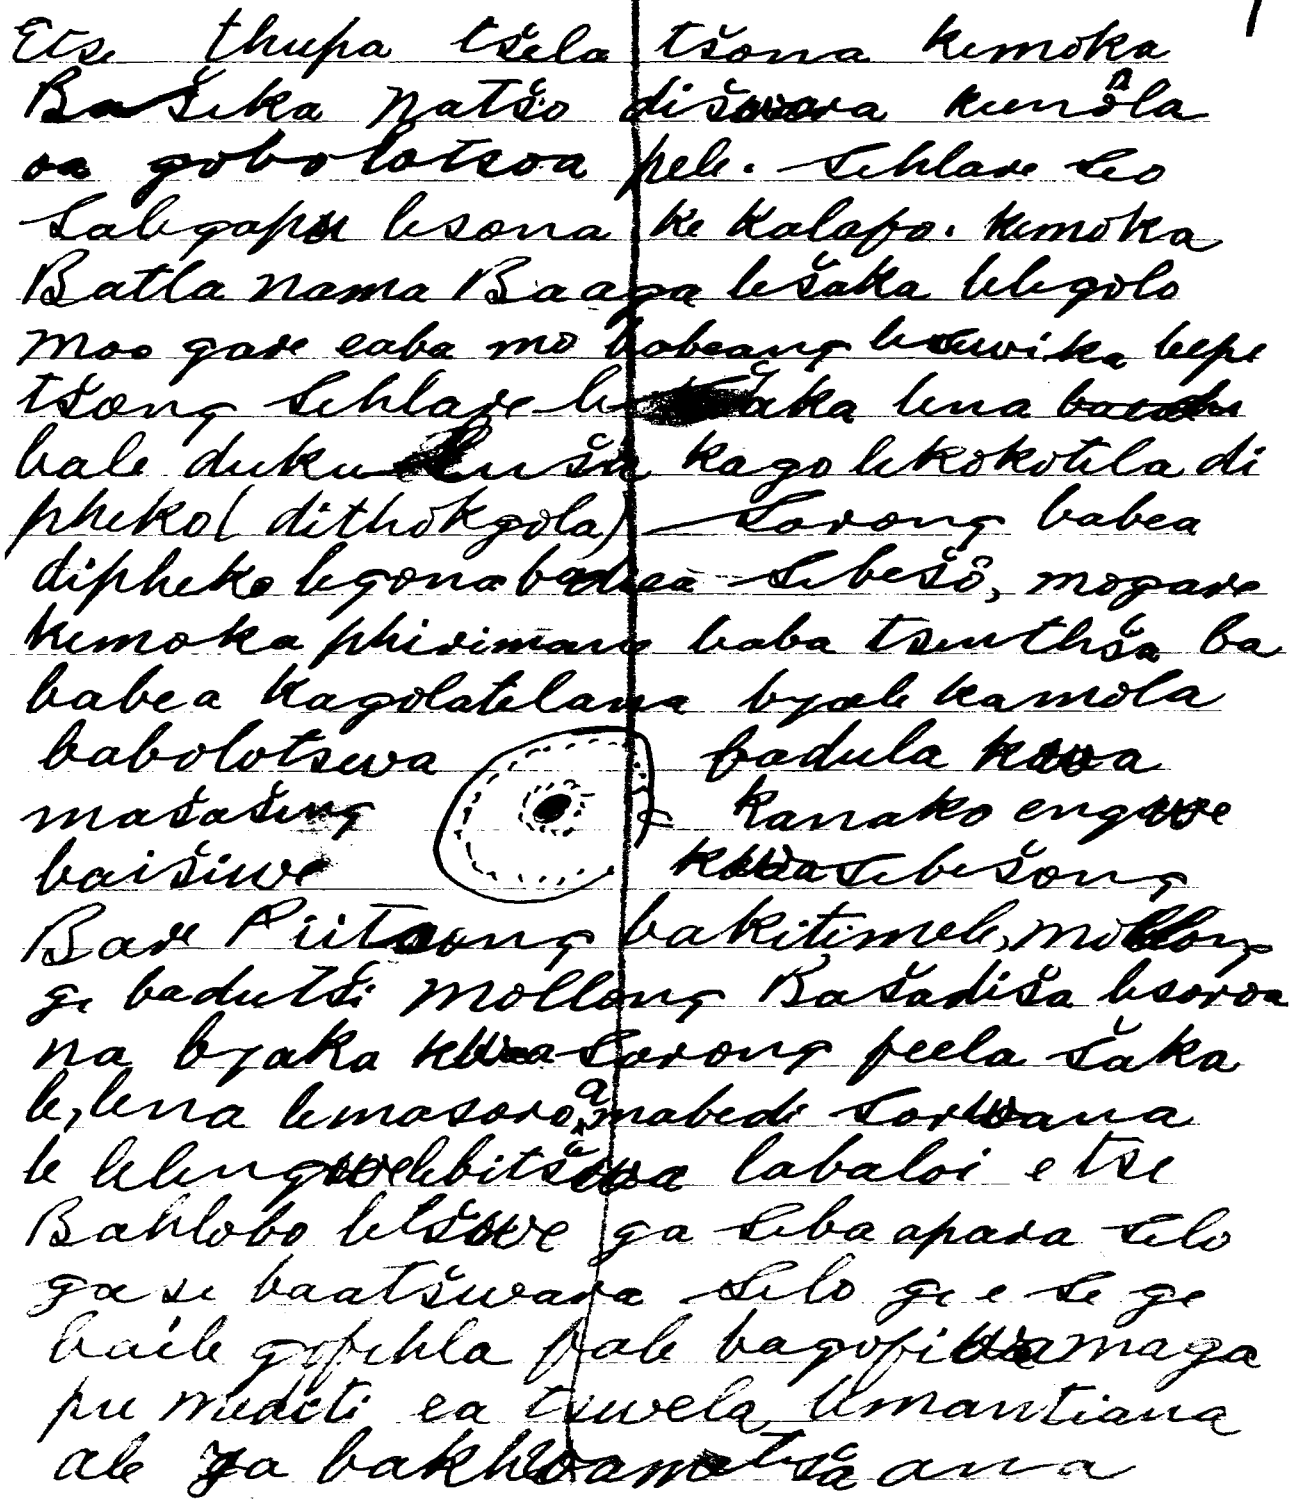 Etse thupa tšela tšona kemoka
Bašeka natšo dišwara keenôla
oa gobolotsoa pele. Sehlare seo
Salegapu lesona ke kalafo. kemoka
Batla nama Baaga lešaka lelegolo
moo gare eaba mo babeang leswika beepe
tšong Sehlare le šaka lena
bale duku kago lekokotela di
pheko (dithôkgola) Sorong babea
dipheko legona badira Sebešô, mogare
kemoka phirimane baba tsenthša ba
babea kagolatelana byale kamôla
babolotswa badula kwa
mašašeng kanako engwe
baišiwe kwa Sebešong
Bare Piitšong bakitimele, mollong
ge badutši mollong Bašadiša lesoroa
na byaka kwa Sorong feela šaka
le, lena lemasoroana mabedi Sorwana
le lelengwe lebitšwa labaloi etse
Bahlobo letšwe ga Seba apara Selo
ga se baatšwara Selo ge e se ge
baile gofehla fale bagofiwa maga
pu mediti ea tswela, lemantiana
ale ga bakhwametšaana